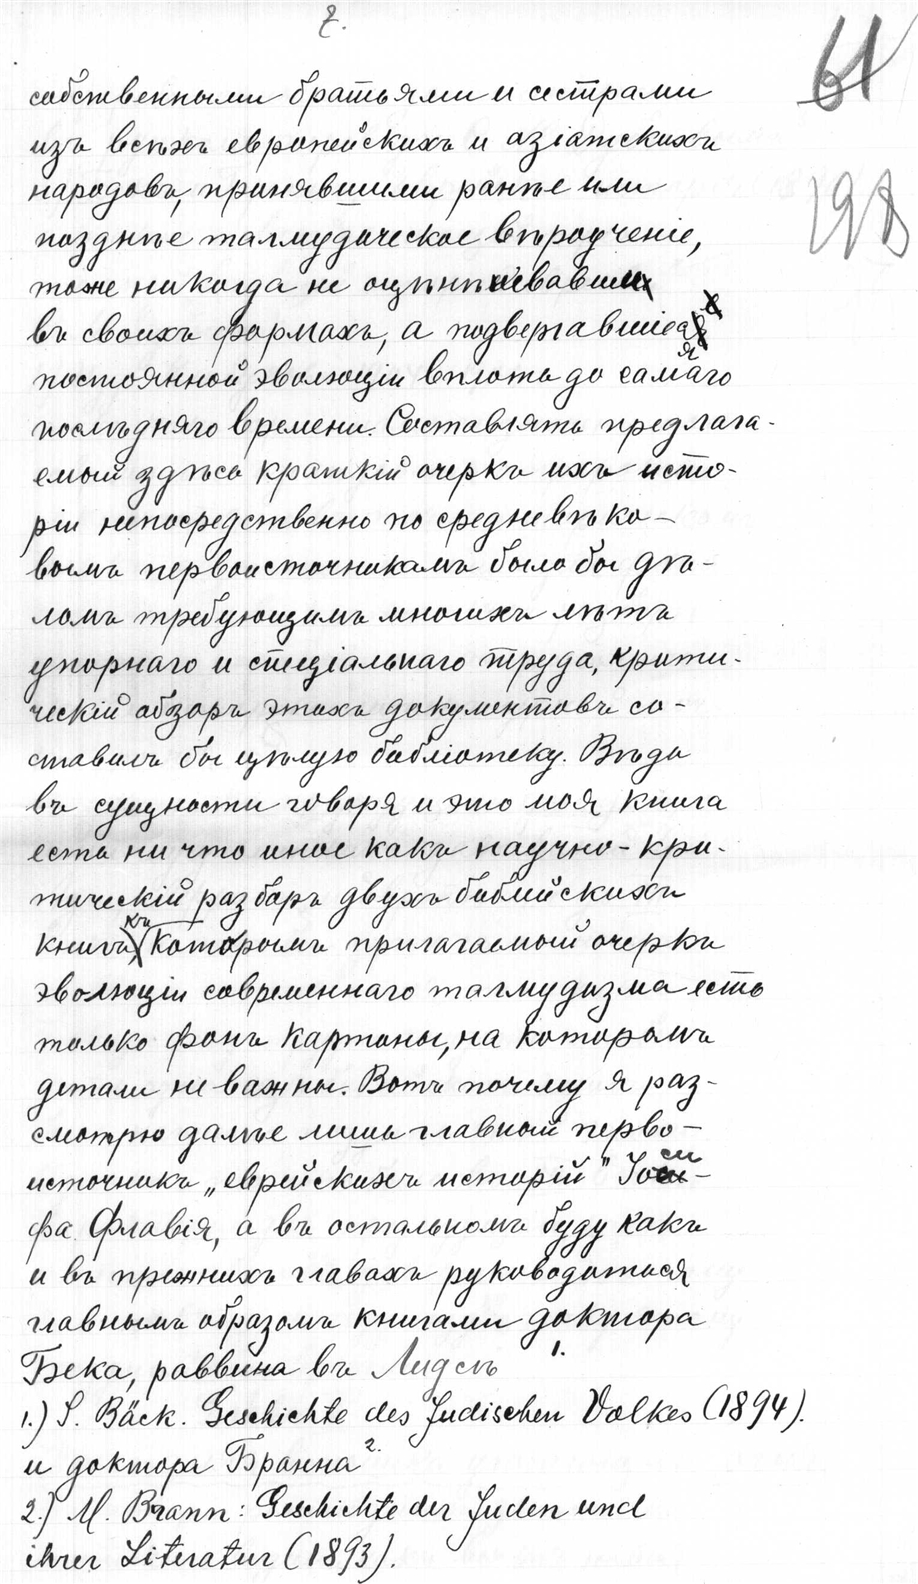 7.
61
198
собственными братьями и сестрами
изъ всѣхъ европейскихъ и азіатскихъ
народовъ, принявшими ранѣе или
позднѣе талмудическое вѣроученіе,
тоже никогда не
въ своихъ формахъ, а подвергавшіеся
постоянной эволюціи вплоть до самаго
послѣдняго времени. Составлять предлага-
емый здѣсь краткій очеркъ ихъ исто-
ріи непосредственно по средневѣко-
вымъ первоисточникамъ было бы дѣ-
ломъ требующимъ многихъ лѣтъ
упорнаго и спеціальнаго труда, крити-
ческій обзоръ этихъ документовъ со-
ставилъ бы цѣлую библіотеку. Вѣдь
въ сущности говоря и это моя книга
есть ни что иное какъ научно-кри-
тическій разборъ двухъ библійскихъ
книгъ, къ которымъ прилагаемый очеркъ
эволюціи современнаго талмудизма есть
только фонъ картины, на которомъ
детали не важны. Вотъ почему я раз-
смотрю далѣе лишь главный перво-
источникъ „еврейскихъ исторій" Іоси-
фа Флавія, а въ остальномъ буду какъ
и въ прежнихъ главахъ руководиться
главнымъ образомъ книгами доктора
Бека, раввина въ Лидсѣ 1.
1.) S. Bäck. Geschichte des Judischen Volkes (1894).
и доктора Бранна 2.
2.) M. Brann: Geschichte der Juden und
ihrer Literatur (1893).